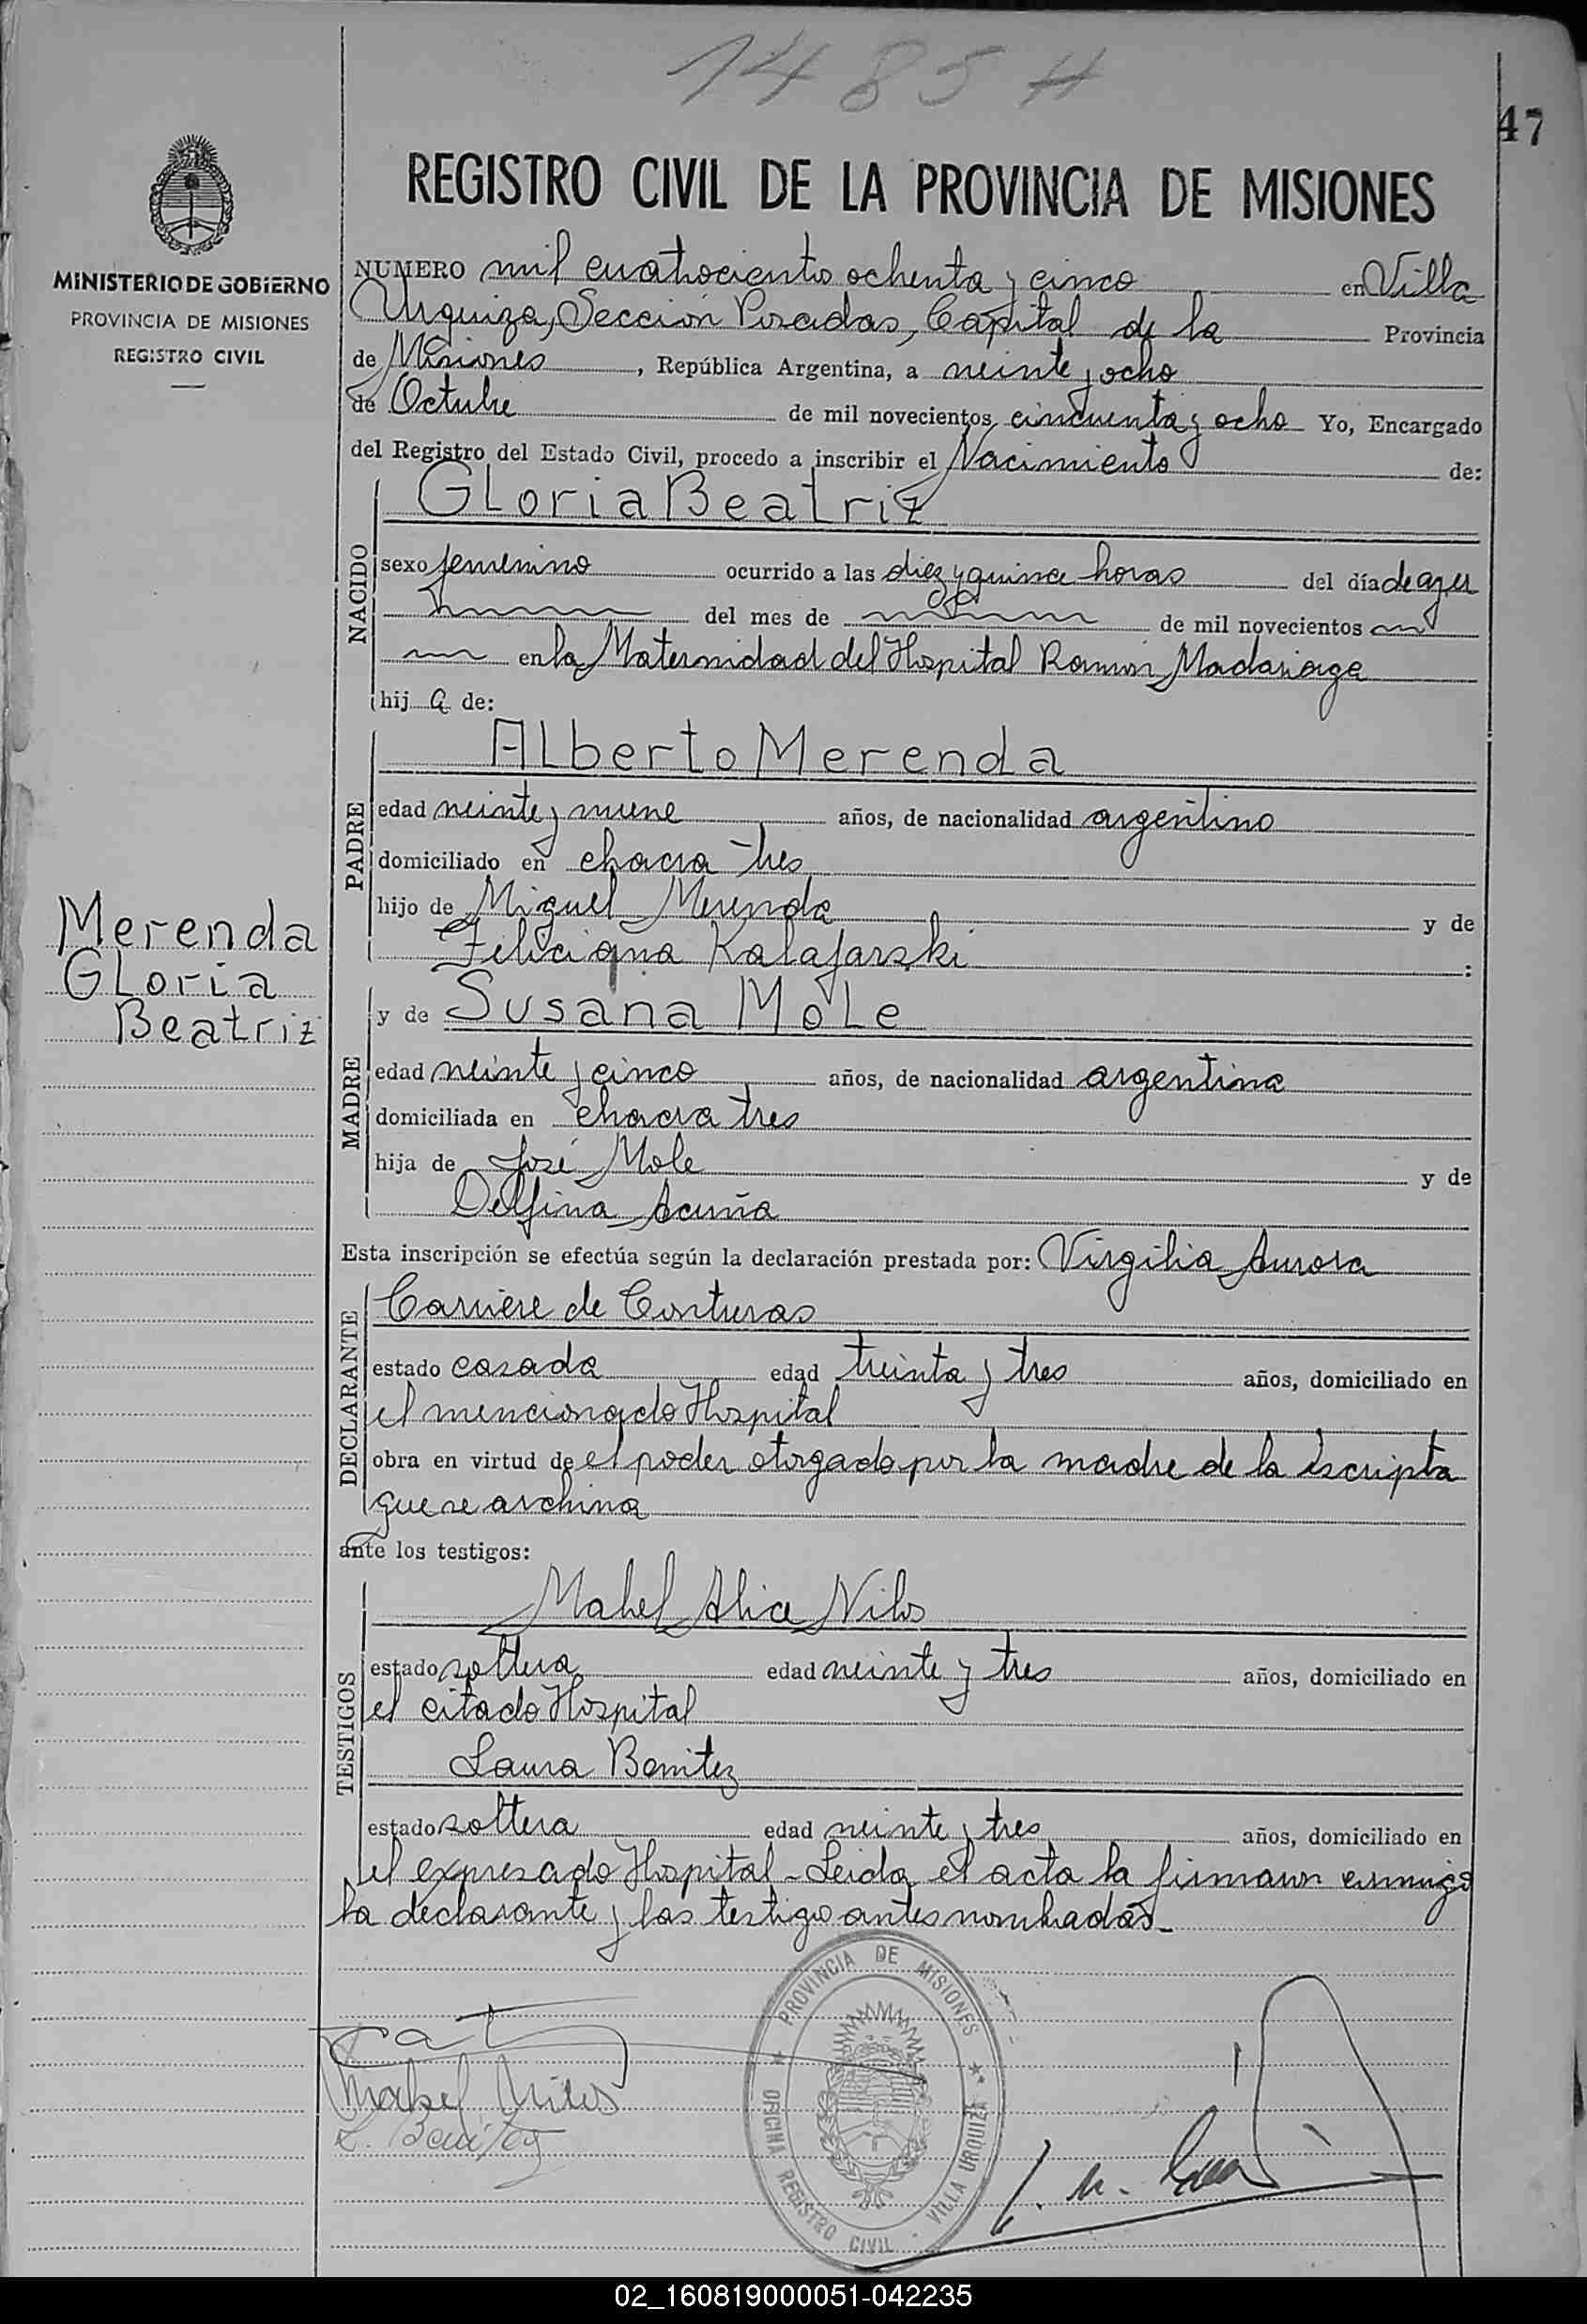 1485 H
47
REGISTRO CIVIL DE LA PROVINCIA DE MISIONES
MINISTERIO DE GOBIERNO
PROVINCIA DE MISIONES
REGISTRO CIVIL
NUMERO mil cuatrocientos ochenta y cinco en Villa
Urquiza, Sección Posadas, Capital de la Provincia
de Misiones, República Argentina, a veinte y ocho
de Octubre de mil novecientos cincuenta y ocho Yo, Encargado
del Registro del Estado Civil, procedo a inscribir el Nacimiento de:
Gloria Beatriz
NACIDO
sexo femenino ocurrido a las diez y quince horas del día de ayer
del mes de de mil novecientos
en la Maternidad del Hospital Ramón Madariaga
hij a de:
Alberto Merenda
PADRE
edad veinte y nueve años, de nacionalidad argentino
domiciliado en chacra tres
hijo de Miguel Merenda y de
Feliciana Kalafarski :
Merenda
Gloria
Beatriz
y de Susana Mole
MADRE
edad veinte y cinco años, de nacionalidad argentina
domiciliada en chacra tres
hija de José Mole y de
Delfina Acuña
Esta inscripción se efectúa según la declaración prestada por: Virgilia Aurora
DECLARANTE
Carriere de Contreras
estado casada edad treinta y tres años, domiciliado en
el mencionado Hospital
obra en virtud de el poder otorgado por la madre de la iscripta
que se archiva
ante los testigos:
TESTIGOS
Mabel Alice Nilos
estado soltera edad veinte y tres años, domiciliado en
el citado Hospital
Laura Benitez
estado soltera edad veinte y tres años, domiciliado en
el expresado Hospital - Leida el acta la firmaron conmigo
la declarante y las testigo antes nombradas -
PROVINCIA DE MISIONES
OFICINA REGISTRO CIVIL - VILLA URQUIZA
Mabel Nilos
L. Benitez
02_160819000051-042235